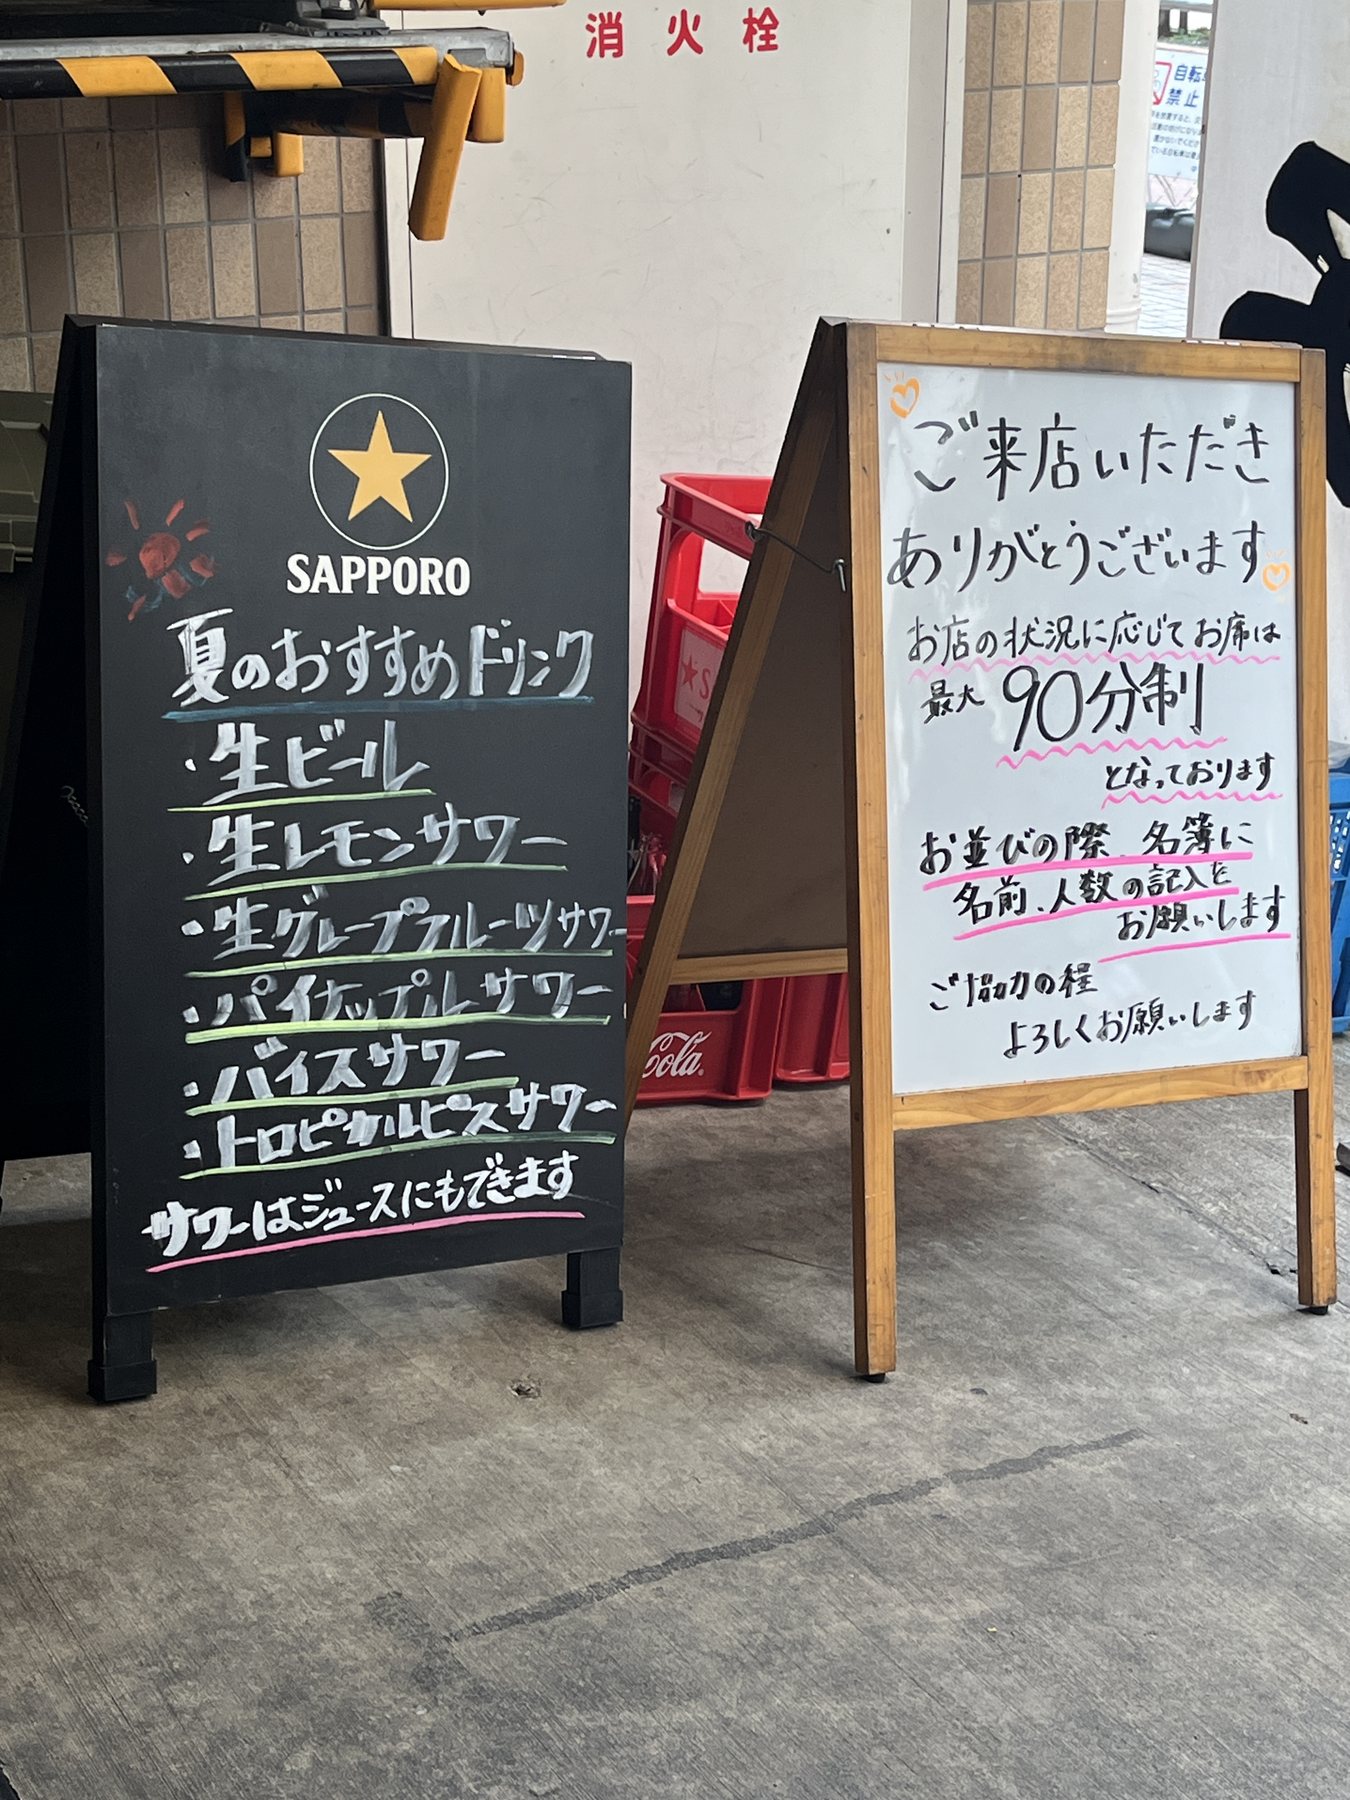 消火栓
自転
禁止
SAPPORO
夏のおすすめドリンク
・生ビール
・生レモンサワー
・生グレープフルーツサワー
・パイナップルサワー
・バイスサワー
・トロピカルピスサワー
サワーはジュースにもできます
ご来店いただき
ありがとうございます
お店の状況に応じてお席は
最大 90分制
となっております
お並びの際、名簿に
名前、人数の記入を
お願いします
ご協力の程
よろしくお願いします
Cola